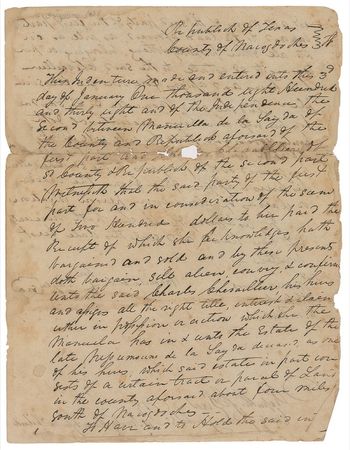 Republick of Texas
County of Nacogdoches
This indenture made and entered into this 3d
day of January One thousand eight Hundred
and thirty eight and of the Independence the
Second between Manuella de la Garza of
the County and Republick aforesaid of the
first part and of
sd County & Republick of the second part
Witnesseth that the said party of the first
part for and in consideration of the sum
of Two Hundred dollars to her paid the
Receipt of which she acknowledges hath
bargained and sold and by these presents
doth bargain, sell alien, convey & confirm
unto the said Charles Chevallier his heirs
and assigns all the right title, interest & claim
either in possession or action which she the
Manuela has in & unto the Estate of the
late Nepomuseno de la Garza deceased, as one
of his heirs, which said estate in part con
sists of a certain tract or parcel of Land
in the county aforesaid about four miles
South of Nacogdoches
To Have and to Hold the said in